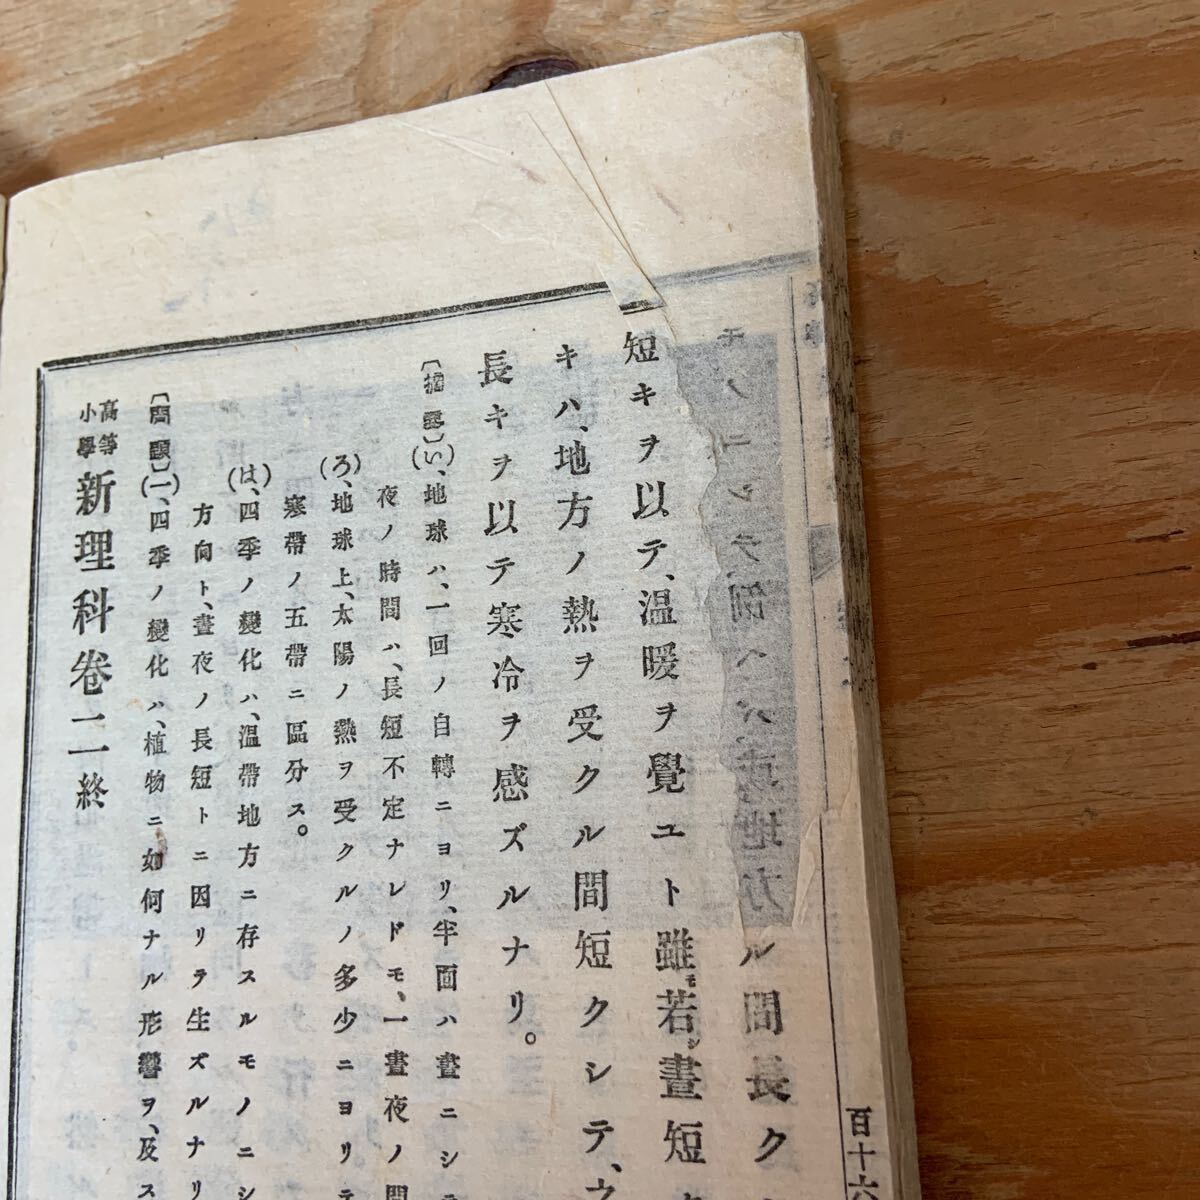 モノニシテ、例ヘバ、或地方ル間長ク
短キヲ以テ、温暖ヲ覺ユト雖モ、若シ晝短
キハ、地方ノ熱ヲ受クル間短クシテ、
長キヲ以テ寒冷ヲ感ズルナリ。
〔摘要〕(い)、地球ハ、一回ノ自轉ニヨリ、半面ハ晝ニシテ
夜ノ時間ハ、長短不定ナレドモ、一晝夜ノ間
(ろ)、地球上、太陽ノ熱ヲ受クルノ多少ニヨリテ
寒帶ノ五帶ニ區分ス。
(は)、四季ノ變化ハ、溫帶地方ニ存スルモノニシ
方向ト、晝夜ノ長短トニ因リテ生ズルナリ
〔問題〕(一)、四季ノ變化ハ、植物ニ如何ナル影響ヲ、及ス
高等小學 新理科卷二終
百十六